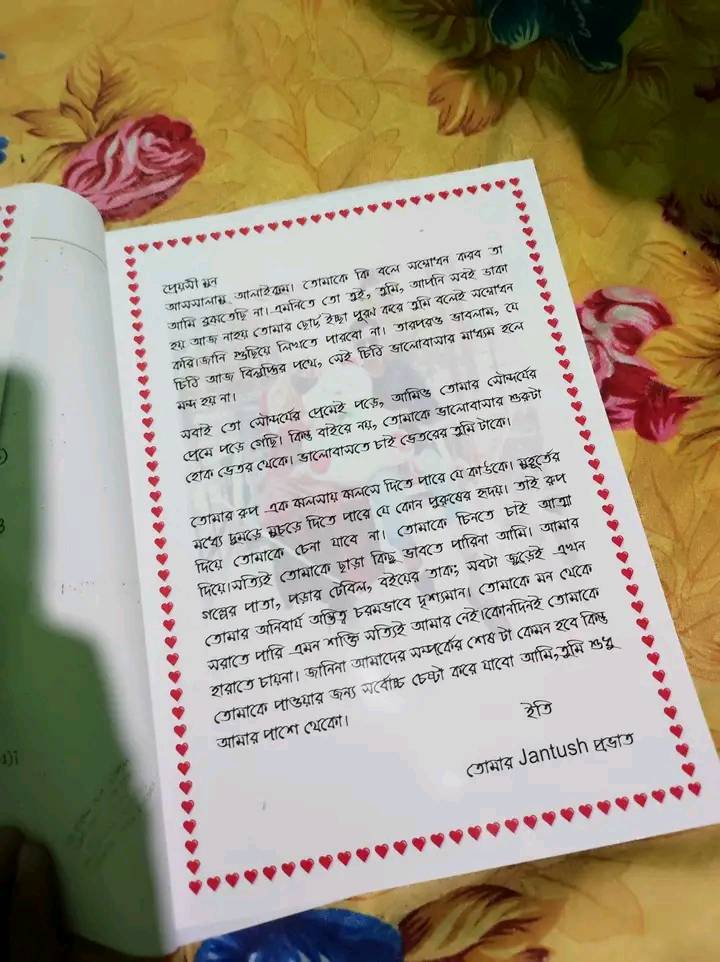 প্রেয়সী মন
আসসালামু আলাইকুম। তোমাকে কি বলে সম্বোধন করব তা
আমি বুঝতেছি না। এমনিতে তো তুই, তুমি, আপনি সবই ডাকা
হয় আজ নাহয় তোমার ছোট্ট ইচ্ছা পূরণ করে তুমি বলেই সম্বোধন
করি।জানি গুছিয়ে লিখতে পারবো না। তারপরও ভাবলাম, যে
চিঠি আজ বিলুপ্তির পথে, সেই চিঠি ভালোবাসার মাধ্যম হলে
মন্দ হয় না।
সবাই তো সৌন্দর্যের প্রেমেই পড়ে, আমিও তোমার সৌন্দর্যের
প্রেমে পড়ে গেছি। কিন্তু বাইরে নয়, তোমাকে ভালোবাসার শুরুটা
হোক ভেতর থেকে। ভালোবাসতে চাই ভেতরের তুমি টাকে।
তোমার রূপ এক ঝলসায় ঝলসে দিতে পারে যে কাউকে। মুহূর্তের
মধ্যে দুমড়ে মুচড়ে দিতে পারে যে কোন পুরুষের হৃদয়। তাই রূপ
দিয়ে তোমাকে চেনা যাবে না। তোমাকে চিনতে চাই আত্মা
দিয়ে।সত্যিই তোমাকে ছাড়া কিছু ভাবতে পারিনা আমি। আমার
গল্পের পাতা, পড়ার টেবিল, বইয়ের তাক; সবটা জুড়েই এখন
তোমার অনিবার্য অস্তিত্ব চরমভাবে দৃশ্যমান। তোমাকে মন থেকে
সরাতে পারি এমন শক্তি সত্যিই আমার নেই।কোনদিনই তোমাকে
হারাতে চায়না। জানিনা আমাদের সম্পর্কের শেষ টা কেমন হবে কিন্তু
তোমাকে পাওয়ার জন্য সর্বোচ্চ চেষ্টা করে যাবো আমি,তুমি শুধু
আমার পাশে থেকো।
ইতি
তোমার Jantush প্রভাত